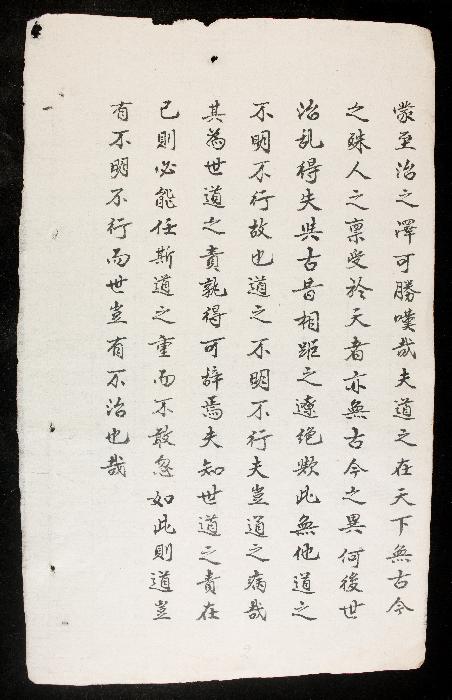 蒙至治之澤可勝嘆哉夫道之在天下無古今
之殊人之禀受於天者亦無古今之異何後世
治乱得失與古昔相距之遼绝欤此無他道之
不明不行故也道之不明不行夫豈道之病哉
其為世道之責孰得可辞焉夫知世道之責在
已則必能任斯道之重而不敢忽如此則道豈
有不明不行而世豈有不治也哉